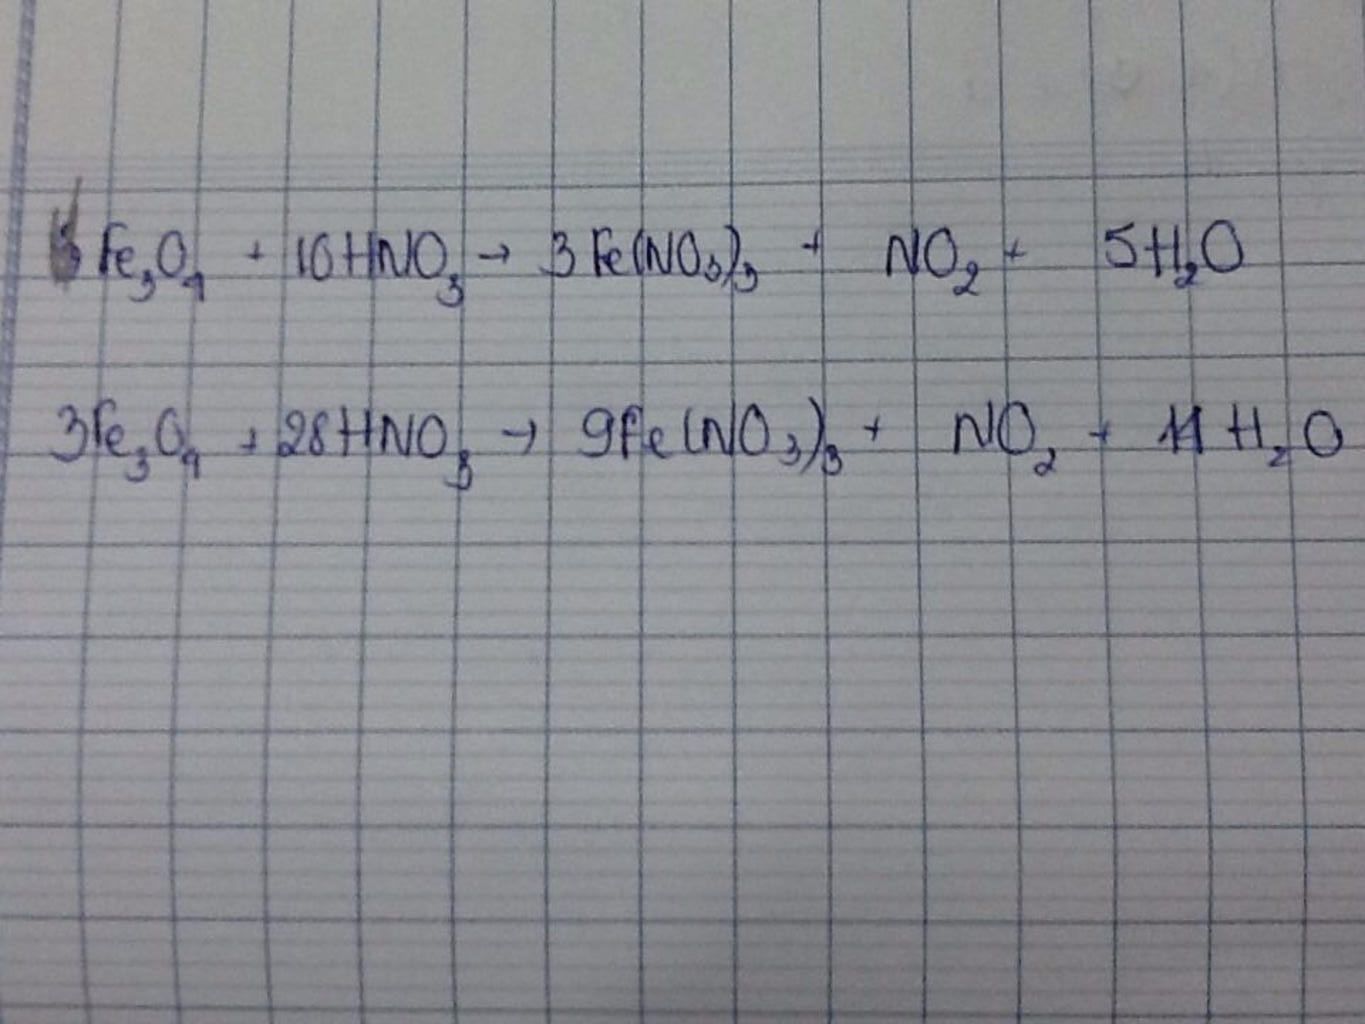 Fe₃O₄ + 10HNO₃ → 3Fe(NO₃)₃ + NO₂ + 5H₂O
3Fe₃O₄ + 28HNO₃ → 9Fe(NO₃)₃ + NO₂ + 14H₂O